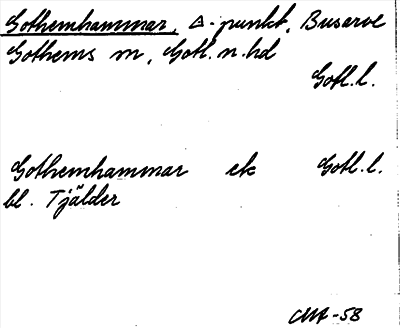 Gothemhammar, △-punkt, Busarve
Gothems sn, Gotl. n. hd
Gotl. l.
Gothemhammar ek Gotl. l.
bl. Tjälder
-58